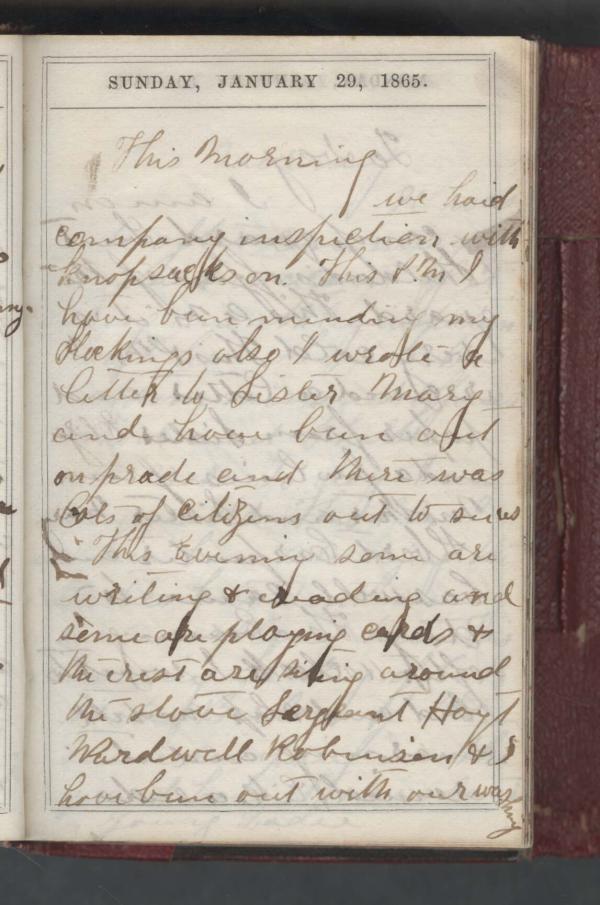 SUNDAY, JANUARY 29, 1865.
This Morning
we haid
company inspection with
knopsacks on. This P.M I
have bein mending my
Stockings also I wrote a
letter to Sister Mary
and have bein out
on prade and there was
Lots of citizens out to see us
This Evening some are
writing & reading and
some are playing cards &
the rest are siting around
the stove Sergeant Hoyt
Wardwell Robinson & I
have bein out with our washing